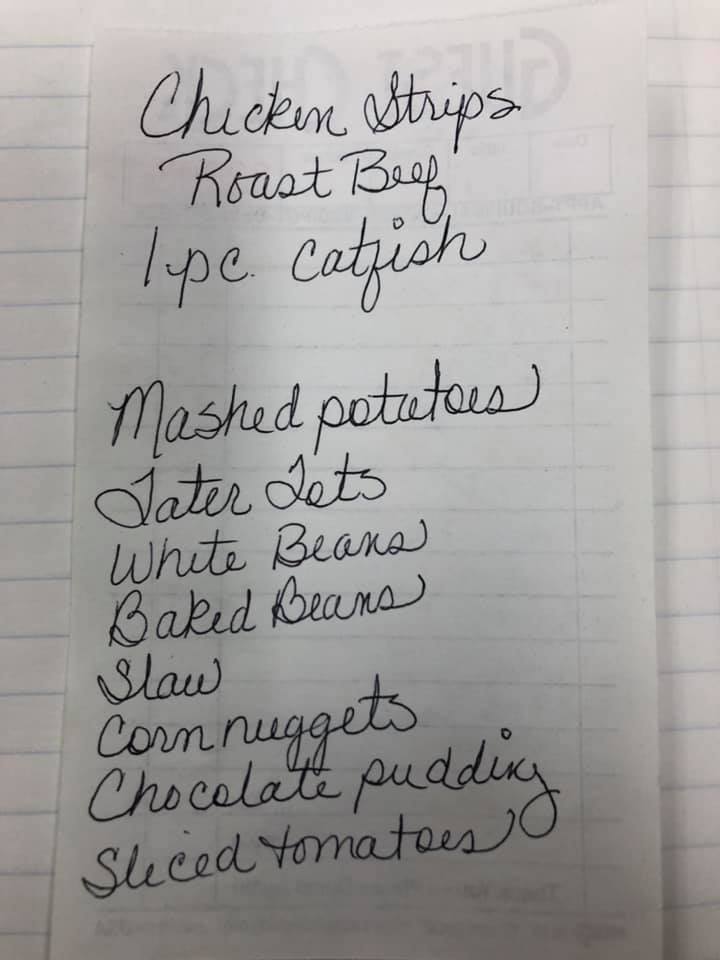 Chicken Strips
Roast Beef
1 pc. Catfish
Mashed potatoes
Tater Tots
White Beans
Baked Beans
Slaw
Corn nuggets
Chocolate pudding
Sliced tomatoes